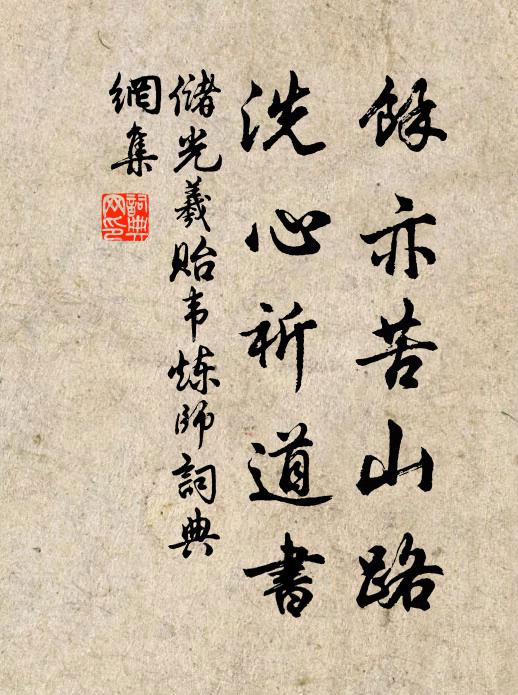 餘亦苦山路
洗心祈道書
儲光羲貽韦炼师詞典
網集
詞典
网印